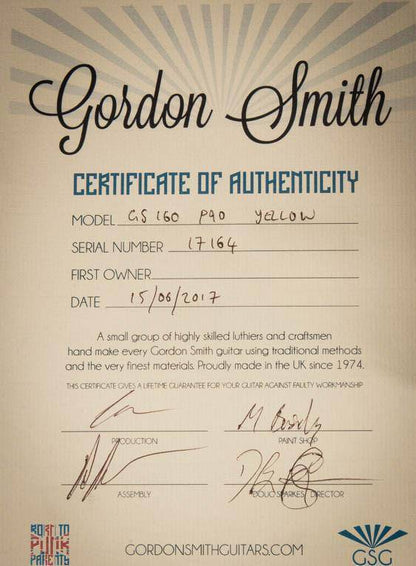 Gordon Smith
CERTIFICATE OF AUTHENTICITY
MODEL GS 160 P90 YELLOW
SERIAL NUMBER 17164
FIRST OWNER
DATE 15/06/2017
A small group of highly skilled luthiers and craftsmen
hand make every Gordon Smith guitar using traditional methods
and the very finest materials. Proudly made in the UK since 1974.
THIS CERTIFICATE GIVES A LIFETIME GUARANTEE FOR YOUR GUITAR AGAINST FAULTY WORKMANSHIP
PRODUCTION
PAINT SHOP
ASSEMBLY
DOUG SPARKES DIRECTOR
BORN TO
PUNK
PARENTS
GORDONSMITHGUITARS.COM
GSG